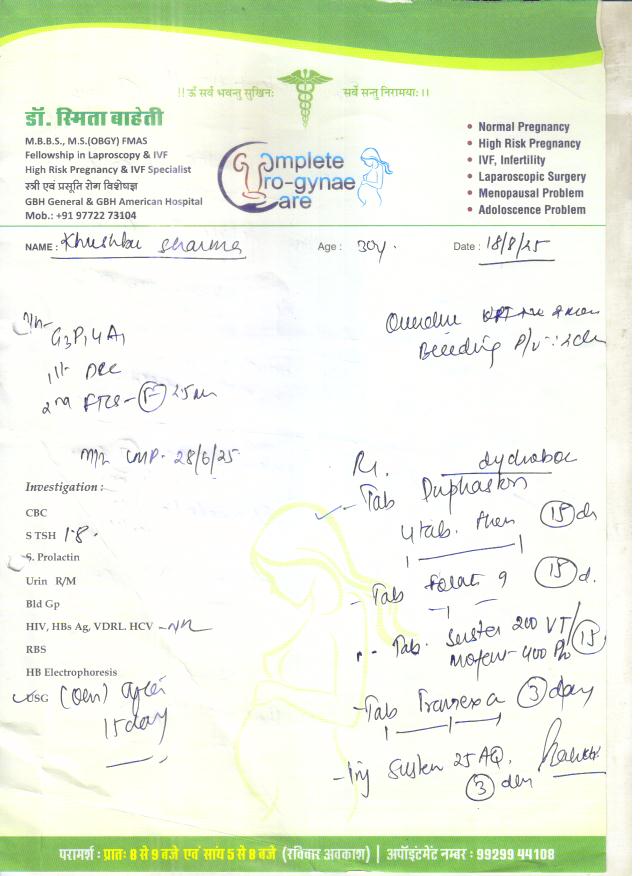 !! ॐ सर्वे भवन्तु सुखिनः सर्वे सन्तु निरामयाः !!
डॉ. स्मिता बाहेती
M.B.B.S., M.S.(OBGY) FMAS
Fellowship in Laproscopy & IVF
High Risk Pregnancy & IVF Specialist
स्त्री एवं प्रसूति रोग विशेषज्ञ
GBH General & GBH American Hospital
Mob.: +91 97722 73104
Complete
Uro-gynae
Care
• Normal Pregnancy
• High Risk Pregnancy
• IVF, Infertility
• Laparoscopic Surgery
• Menopausal Problem
• Adoloscence Problem
NAME : Khushbu Sharma Age : 30y. Date : 18/8/25
G3P1 A1
Overdue
Bleeding P/V
2nd FTLS - F 25m
LMP - 28/6/25
Investigation :
CBC
S TSH 1.8.
S. Prolactin
Urin R/M
Bld Gp
HIV, HBs Ag, VDRL. HCV - NR
RBS
HB Electrophoresis
USG after
15 day
- Tab Duphaston
4 tab. then 15 d
- Tab 9 15 d.
- Tab. Susten 200 VT/ 15
400
- Tab Tranexa 3 day
- Inj Susten 25 AQ.
3
परामर्श : प्रातः 8 से 9 बजे एवं सांय 5 से 8 बजे (रविवार अवकाश) | अपॉइंटमेंट नम्बर : 99299 44108